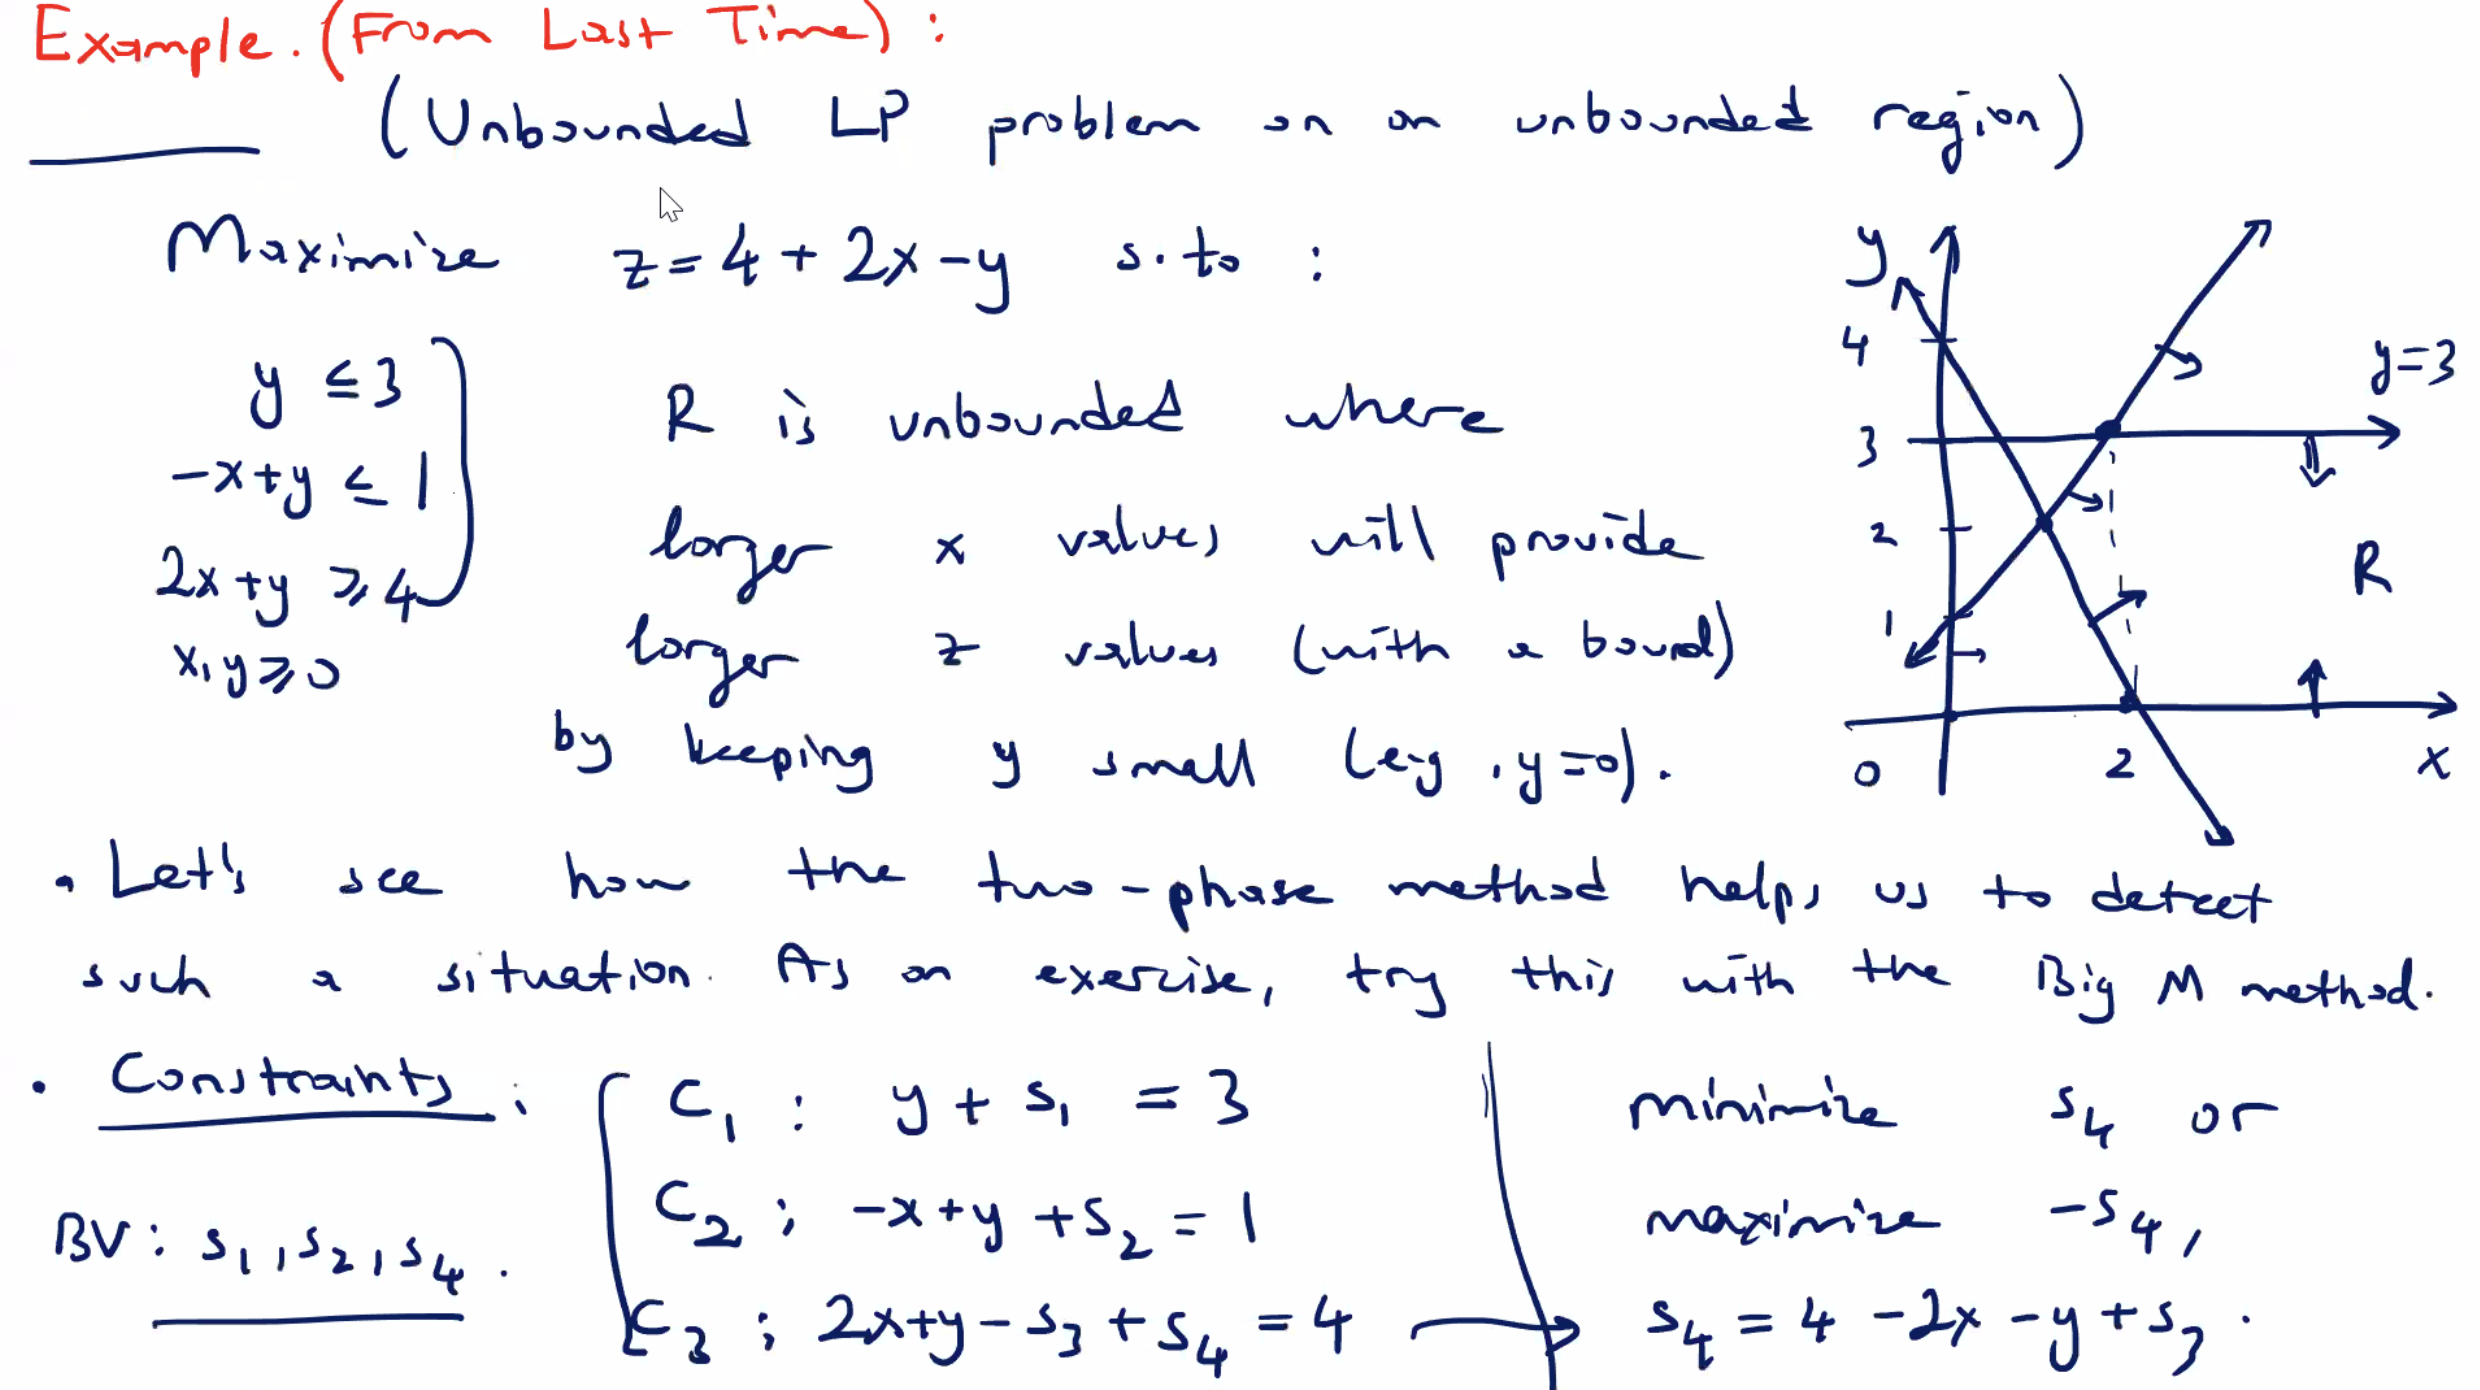 Example. (From Last Time) :
(Unbounded LP problem on an unbounded region)
Maximize z = 4 + 2x - y s. to :
y ≤ 3
-x+y ≤ 1
2x+y ≥ 4
x, y ≥ 0
R is unbounded where
larger x values will provide
larger z values (with a bound)
by keeping y small (e.g., y=0).
y
4
3
2
1
0
2
x
y=3
R
• Let's see how the two-phase method helps us to detect
such a situation. As an exercise, try this with the Big M method.
• Constraints :
BV : s₁, s₂, s₄.
C₁ : y + s₁ = 3
C₂ : -x+y + s₂ = 1
C₃ : 2x+y - s₃ + s₄ = 4
minimize s₄ or
maximize -s₄,
s₄ = 4 - 2x - y + s₃.